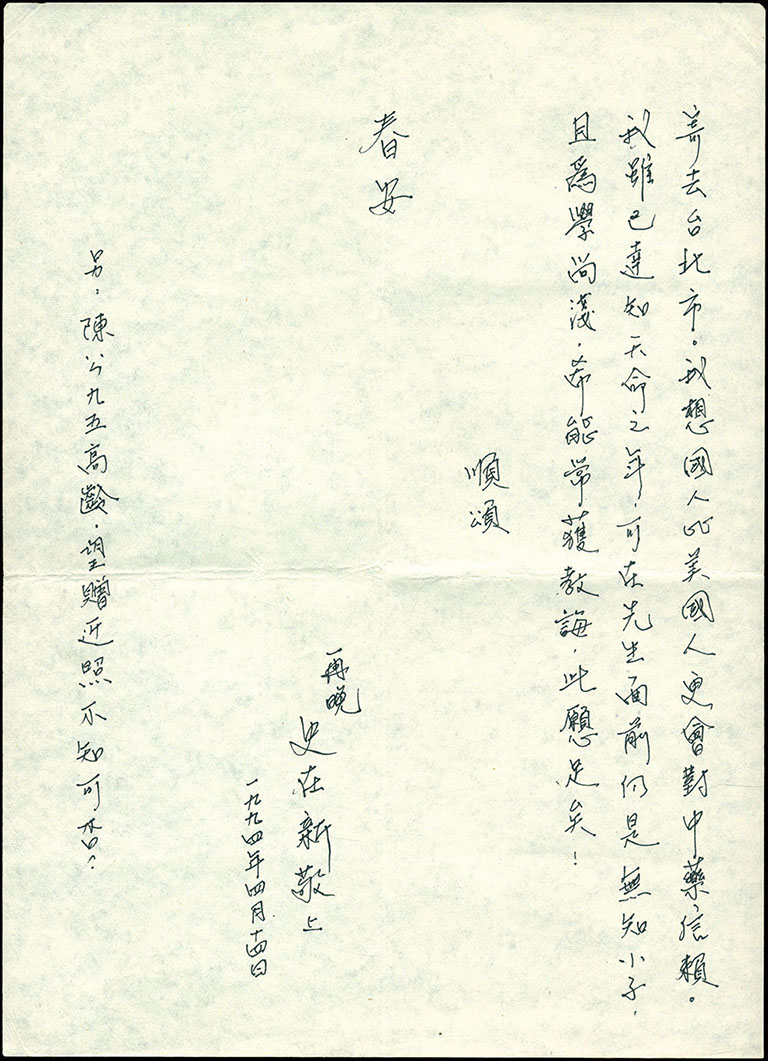 寄去台北市。我想國人比美國人更會對中藥信賴。
我雖已達知天命之年，可在先生面前仍是無知小子，
且為學尚淺，希能常獲教誨，此願足矣！
順頌
春安
再晚
史在新敬上
一九九四年四月十四日
另，陳公九五高齡，望贈近照不知可否？